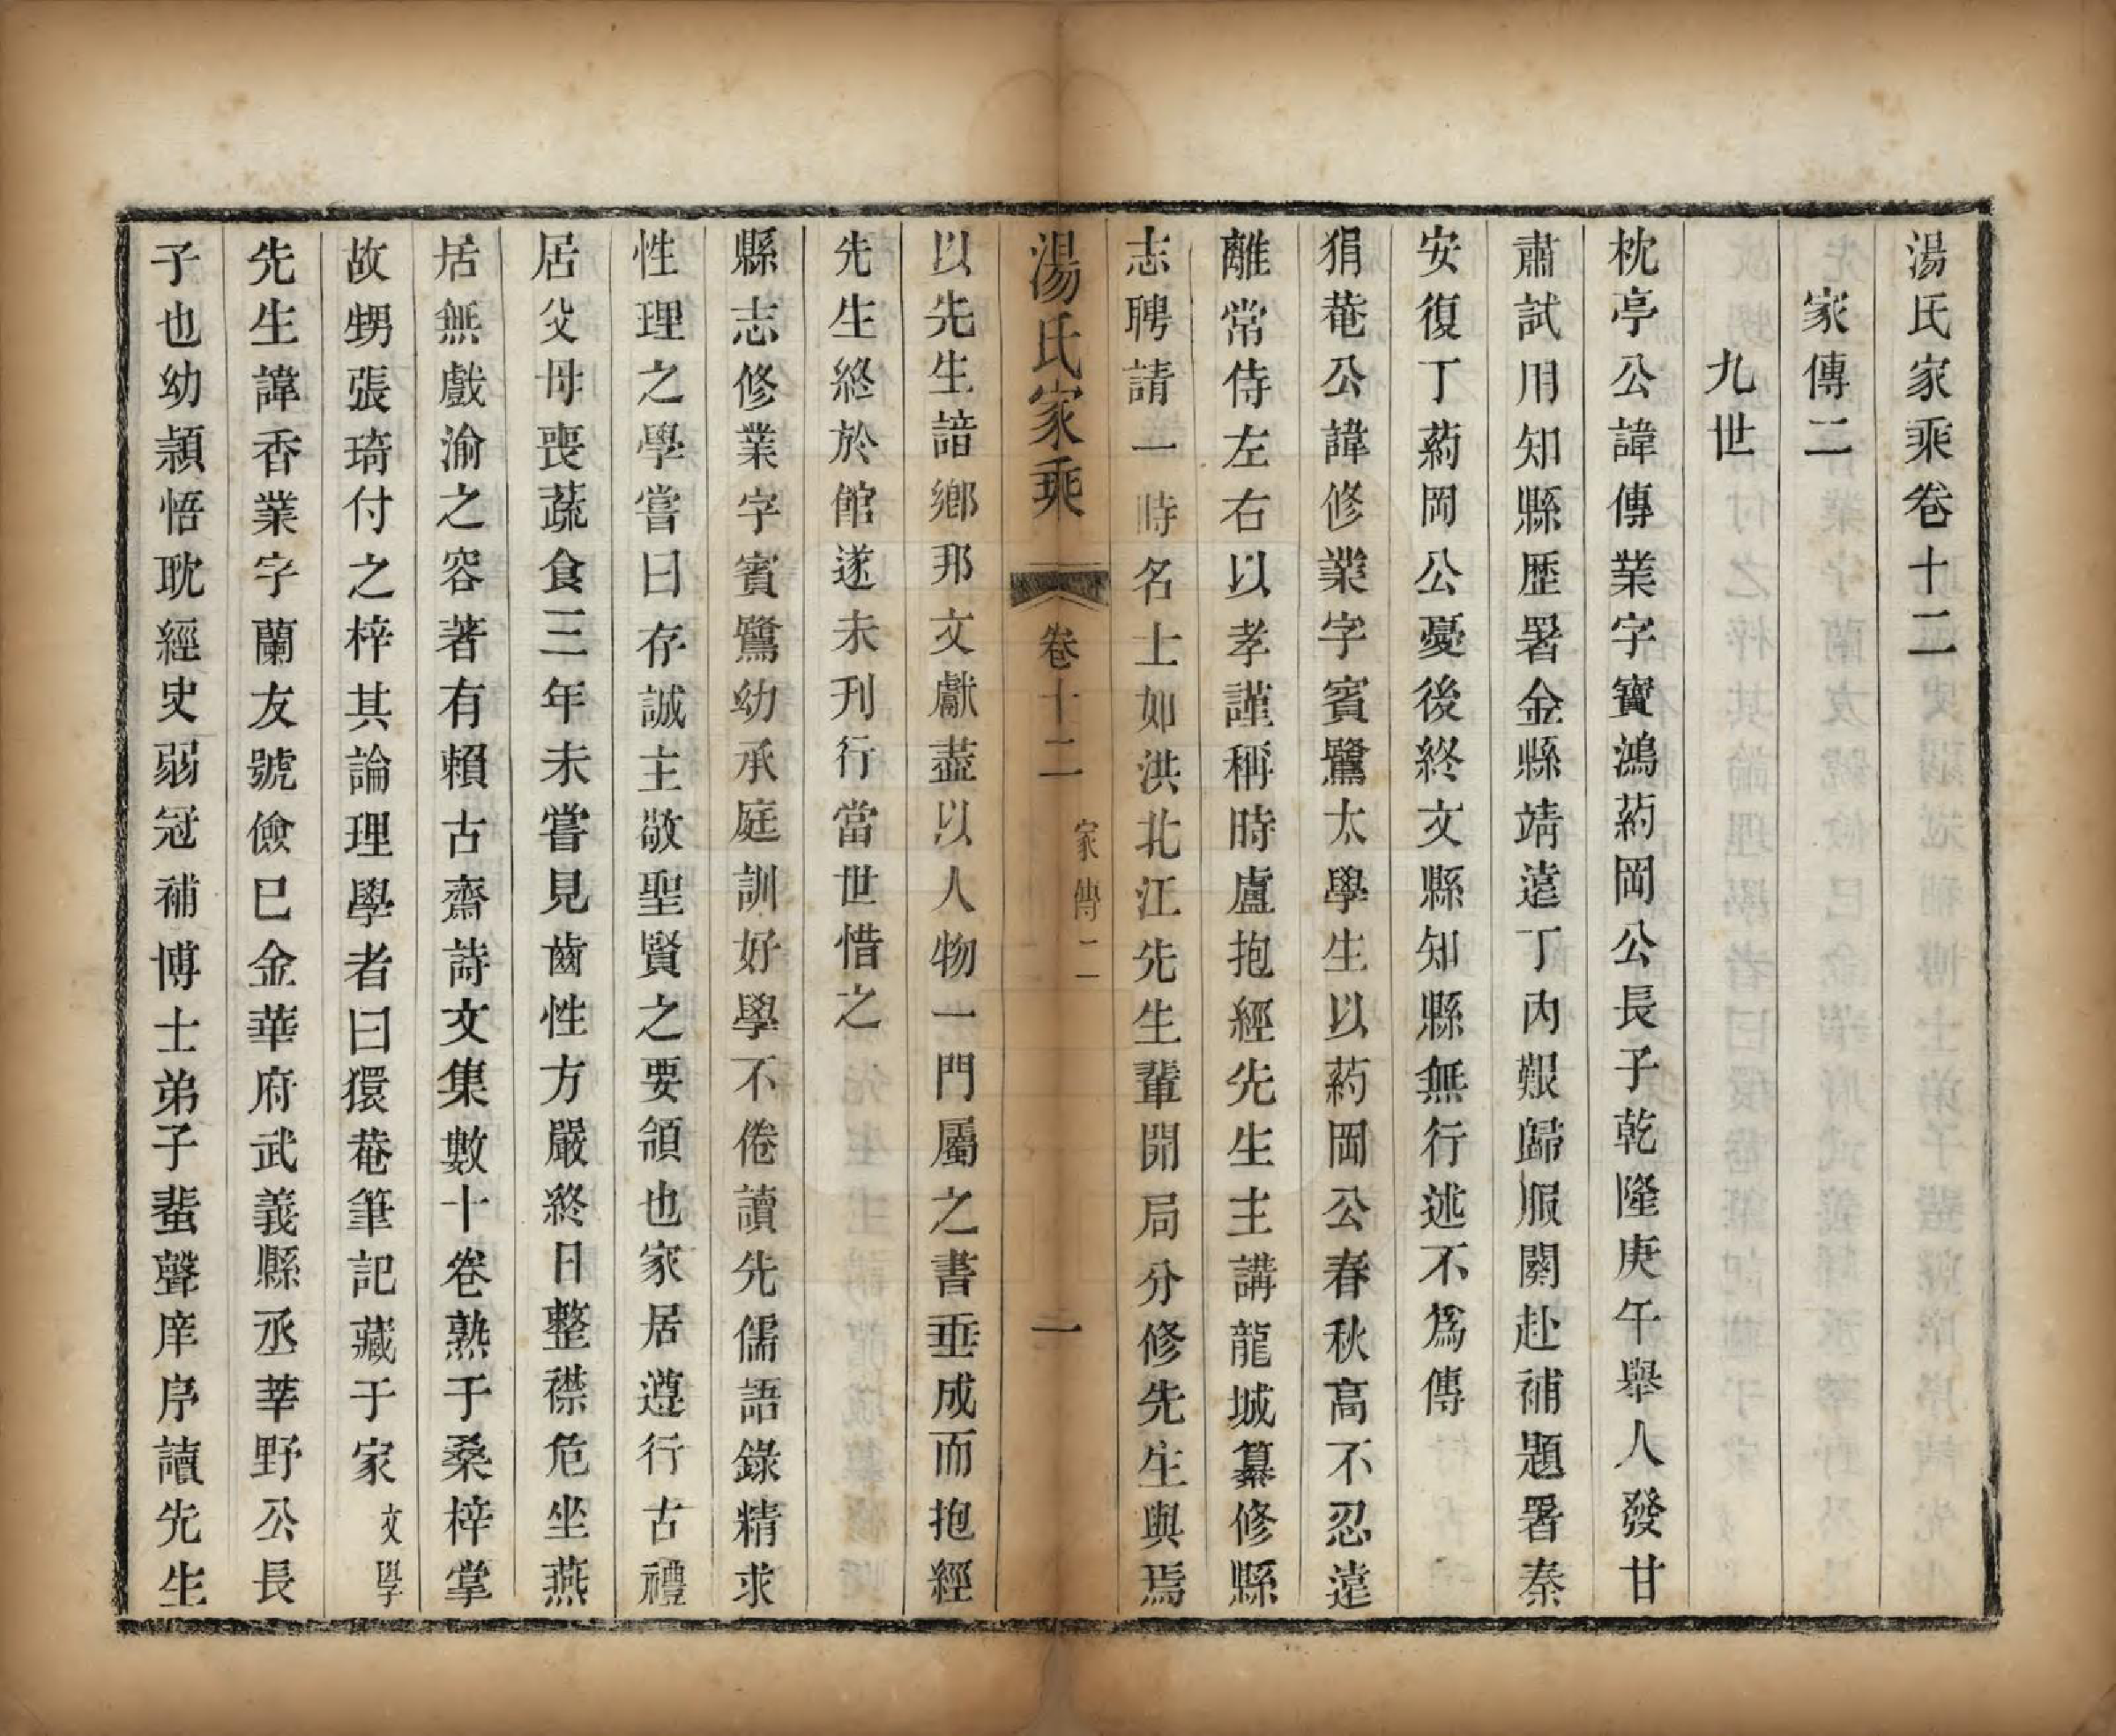 湯氏家乘卷十二
家傳二
九世
枕亭公諱傳業字寶鴻葯岡公長子乾隆庚午舉人發甘
肅試用知縣歷署金縣靖遠丁內艱歸服闋赴補題署秦
安復丁葯岡公憂後終文縣知縣無行述不爲傳
狷菴公諱修業字賓鷺太學生以葯岡公春秋高不忍遠
離常侍左右以孝謹稱時盧抱經先生主講龍城纂修縣
志聘請一時名士如洪北江先生輩開局分修先生與焉
湯氏家乘
卷十二
家傳二
一
以先生諳鄉邦文獻藎以人物一門屬之書垂成而抱經
先生終於館遂未刊行當世惜之
縣志修業字賓鷺幼承庭訓好學不倦讀先儒語錄精求
性理之學嘗曰存誠主敬聖賢之要領也家居遵行古禮
居父母喪蔬食三年未嘗見齒性方嚴終日整襟危坐燕
居無戲渝之容著有賴古齋詩文集數十卷熟于桑梓掌
故甥張琦付之梓其論理學者曰獧菴筆記藏于家文學
先生諱香業字蘭友號儉巳金華府武義縣丞莘野公長
子也幼穎悟耽經史弱冠補博士弟子蜚聲庠序讀先生